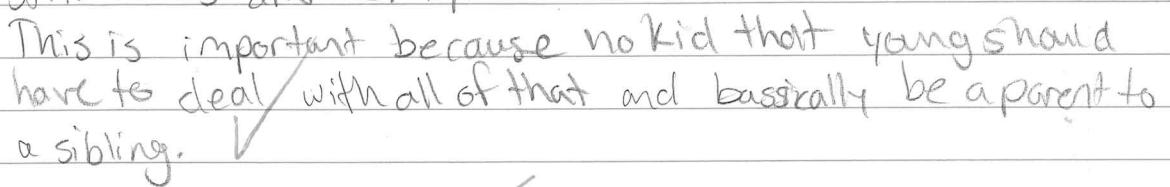 This is important because no kid that young should
have to deal with all of that and bassically be a parent to
a sibling.